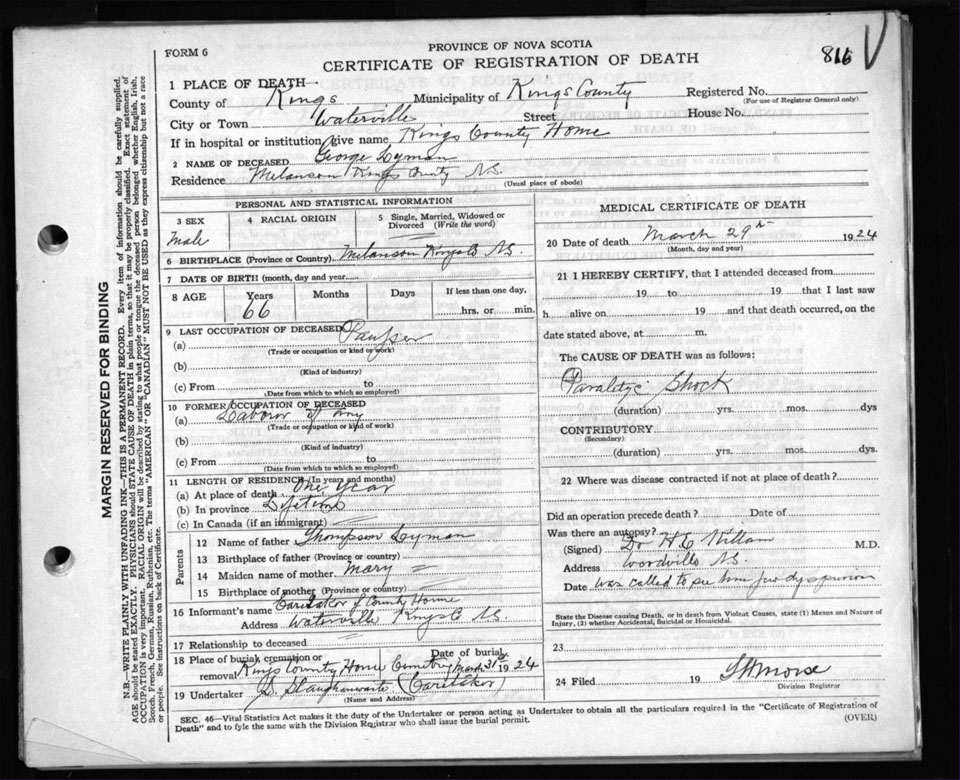 FORM 6
PROVINCE OF NOVA SCOTIA
CERTIFICATE OF REGISTRATION OF DEATH
816
1 PLACE OF DEATH
County of Kings Municipality of Kings County Registered No.
(For use of Registrar General only)
City or Town Waterville Street House No.
If in hospital or institution, give name Kings County Home
2 NAME OF DECEASED George Lyman
Residence Melanson Kings County N.S.
(Usual place of abode)
PERSONAL AND STATISTICAL INFORMATION
3 SEX 4 RACIAL ORIGIN 5 Single, Married, Widowed or Divorced (Write the word)
Male
6 BIRTHPLACE (Province or Country) Melanson Kings Co N.S.
7 DATE OF BIRTH (month, day and year)
8 AGE Years Months Days If less than one day,
66 hrs. or min.
9 LAST OCCUPATION OF DECEASED
(a) Pauper
(Trade or occupation or kind of work)
(b)
(Kind of industry)
(c) From to
(Date from which to which so employed)
10 FORMER OCCUPATION OF DECEASED
(a) Laborer if any
(Trade or occupation or kind of work)
(b)
(Kind of industry)
(c) From to
(Date from which to which so employed)
11 LENGTH OF RESIDENCE (In years and months)
(a) At place of death One Year
(b) In province Lifetime
(c) In Canada (if an immigrant)
Parents
12 Name of father Thompson Lyman
13 Birthplace of father (Province or country)
14 Maiden name of mother Mary
15 Birthplace of mother (Province or country)
16 Informant's name Caretaker of County Home
Address Waterville Kings Co N.S.
17 Relationship to deceased
18 Place of burial, cremation or removal Kings County Home Cemetery Date of burial March 31st 1924
19 Undertaker (Caretaker)
(Name and Address)
MEDICAL CERTIFICATE OF DEATH
20 Date of death March 29th 1924
(Month, day and year)
21 I HEREBY CERTIFY, that I attended deceased from
19 to 19 that I last saw
h alive on 19 and that death occurred, on the
date stated above, at m.
The CAUSE OF DEATH was as follows:
Shock
(duration) yrs. mos. dys
CONTRIBUTORY
(Secondary)
(duration) yrs. mos. dys.
22 Where was disease contracted if not at place of death?
Did an operation precede death? Date of
Was there an autopsy?
(Signed) Dr M.D.
Address N.S.
Date was called to see him for
State the Disease causing Death, or in death from Violent Causes, state (1) Means and Nature of
Injury, (2) whether Accidental, Suicidal or Homicidal.
23
24 Filed 19 Morse
Division Registrar
SEC. 46—Vital Statistics Act makes it the duty of the Undertaker or person acting as Undertaker to obtain all the particulars required in the "Certificate of Registration of
Death" and to fyle the same with the Division Registrar who shall issue the burial permit.
(OVER)
MARGIN RESERVED FOR BINDING
N.B.—WRITE PLAINLY WITH UNFADING INK—THIS IS A PERMANENT RECORD. Every item of information should be carefully supplied.
AGE should be stated EXACTLY. PHYSICIANS should STATE CAUSE OF DEATH in plain terms, so that it may be properly classified. Exact statement of
OCCUPATION is very important. RACIAL ORIGIN will be described by stating to what people or tongue the deceased person belonged whether English, Irish,
Scotch, French, German, Russian, Ruthenian, etc. The terms "AMERICAN" OR "CANADIAN" MUST NOT BE USED as they express citizenship but not a race
or people. See instructions on back of Certificate.